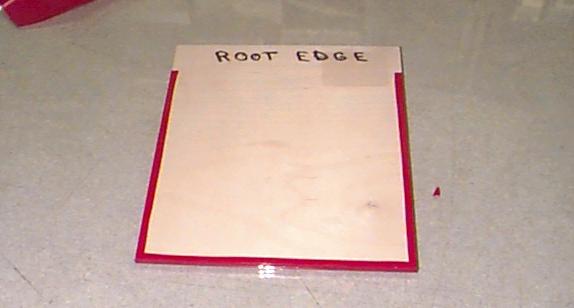 ROOT EDGE